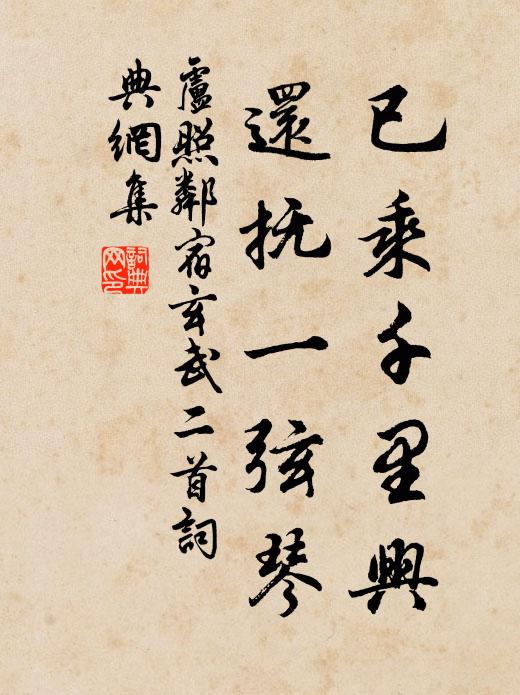 已乘千里興
還抚一弦琴
盧照鄰宿玄武二首詞
典網集
詞典
网印